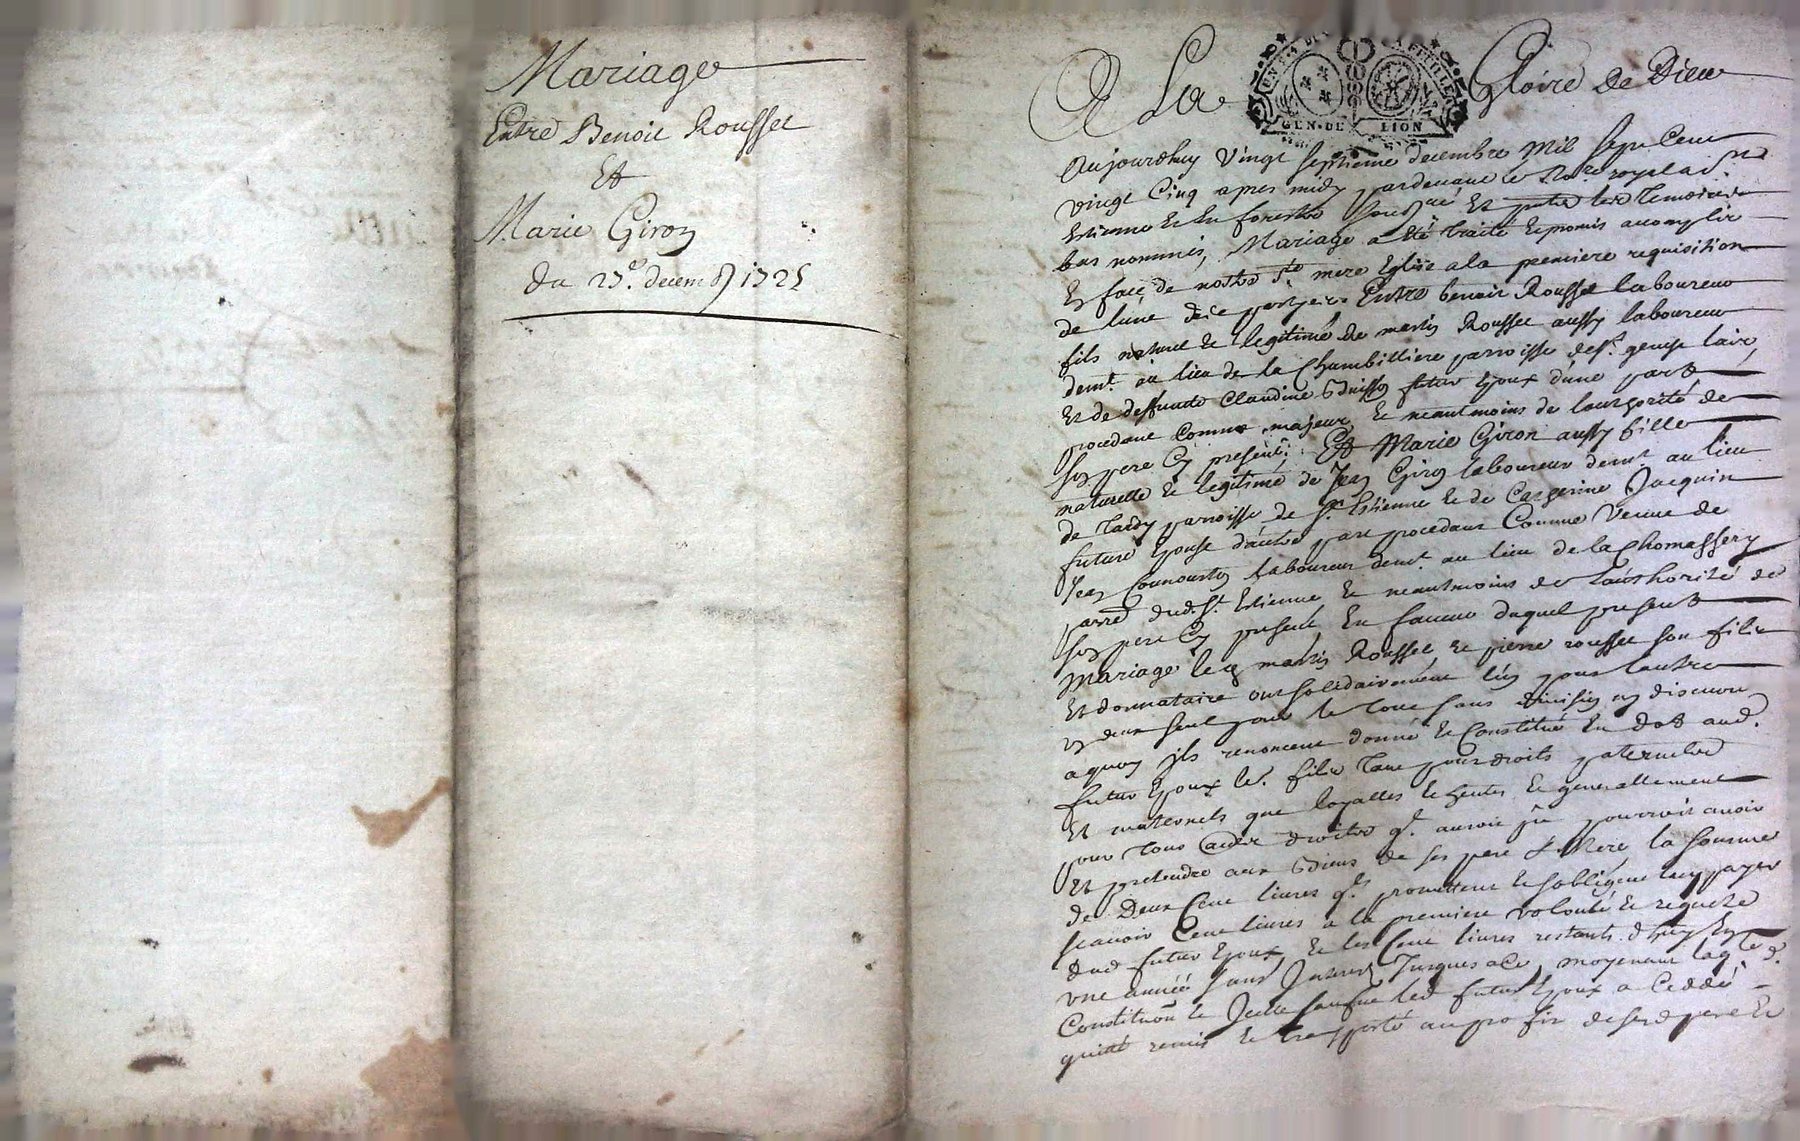 Mariage
Entre Benoit Rousset
Et
Marie Giron
du 27e. decemb 1725
A La Gloire de Dieu
GEN. DE LION
Aujourdhuy vingt septieme decembre mil sept cent
vingt cinq apres midy pardevant le No.re royal a St
Estienne en forestz soubsne Et present les temoins
bas nommés, Mariage a été traité et promis accomplir
En face de nostre Ste mere Eglise a la premiere requisition
de lune des parties. Entre benoit Rousset laboureur
fils naturel et legitime de martin Rousset aussy laboureur
demt. au lieu de la Chambilliere parroisse de St. genest lair,
Et de deffunte Claudine futur Epoux d'une part
procedant comme majeur, et neantmoins de lauthorité de
son pere Cy present; Et Marie Giron aussy fille
naturelle et legitime de Jean Giron laboureur demt. au lieu
de Tardy parroisse de St Estienne et de Catherine Jacquin
future Epouse d'autre part procedant Comme veuve de
Jean laboureur demt. au lieu de la Chomassery
parr. dud. St. Estienne et neantmoins de l'authorité de
son pere Cy present En faveur duquel present
Mariage led martin Rousset et pierre rousset son fils
Et donnataire ont solidairement lun pour lautre
un deux seul pour le tout sans division ny discution
a quoy ils renoncent donné et Constitué En dot aud.
futur Epoux led. fils tant pour droits paternels
Et maternels que loyalles et generallement
pour tous autres droits qt. auroit ou pourroit avoir
Et pretendre aux Biens de ses pere & Mere la somme
de Deux Cent livres qls. promettent et sobligent luy payer
scavoir Cent livres a la premiere volonté et requete
dud futur Epoux, et les Cent livres restants d'huy En
une année sans Interest Jusques a ce, moyenant laqte. d.
Constituon et Icelle sauf led futur Epoux a Ceddé
quitté remis et transporté au profit de sesd pere et